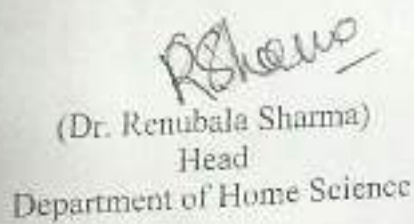 RSharma
(Dr. Renubala Sharma)
Head
Department of Home Science